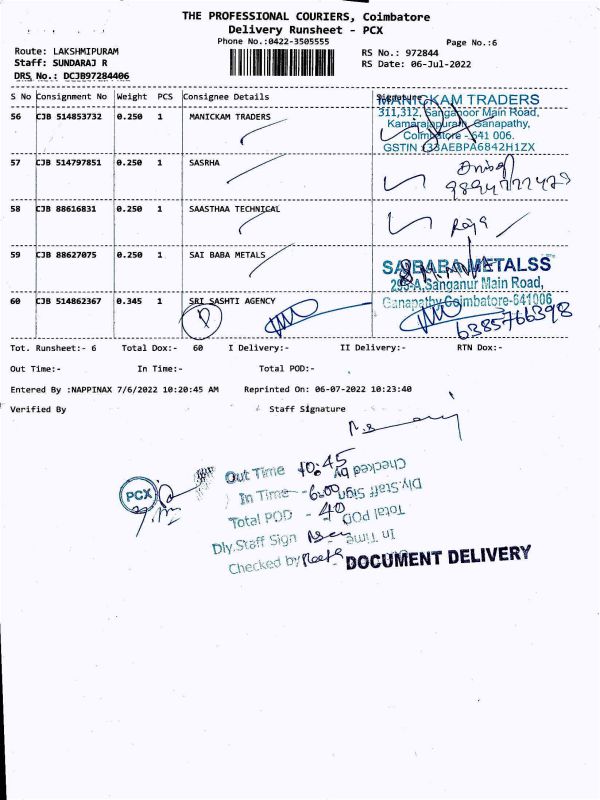 THE PROFESSIONAL COURIERS, Coimbatore
Delivery Runsheet - PCX
Phone No.:0422-3505555
Page No.:6
Route: LAKSHMIPURAM
RS No.: 972844
Staff: SUNDARAJ R
RS Date: 06-Jul-2022
DRS No.: DCJB97284406
S No Consignment No Weight PCS Consignee Details Signature
56 CJB 514853732 0.250 1 MANICKAM TRADERS
MANICKAM TRADERS
311,312, Sanganoor Main Road,
Kamarajapuram, Ganapathy,
Coimbatore - 641 006.
GSTIN : 33AEBPA6842H1ZX
57 CJB 514797851 0.250 1 SASRHA
58 CJB 88616831 0.250 1 SAASTHAA TECHNICAL
Raja
59 CJB 88627075 0.250 1 SAI BABA METALS
SAIBABA METALSS
Sanganur Main Road,
60 CJB 514862367 0.345 1 SRI SASHTI AGENCY
Ganapathy Coimbatore-641006
6385766398
Tot. Runsheet:- 6 Total Dox:- 60 I Delivery:- II Delivery:- RTN Dox:-
Out Time:- In Time:- Total POD:-
Entered By :NAPPINAX 7/6/2022 10:20:45 AM Reprinted On: 06-07-2022 10:23:40
Verified By Staff Signature
PCX
Out Time 10:45
In Time - 6:00
Total POD - 40
Dly.Staff Sign
Checked by
Checked by
Dly.Staff Sign
Total POD
In Time
DOCUMENT DELIVERY